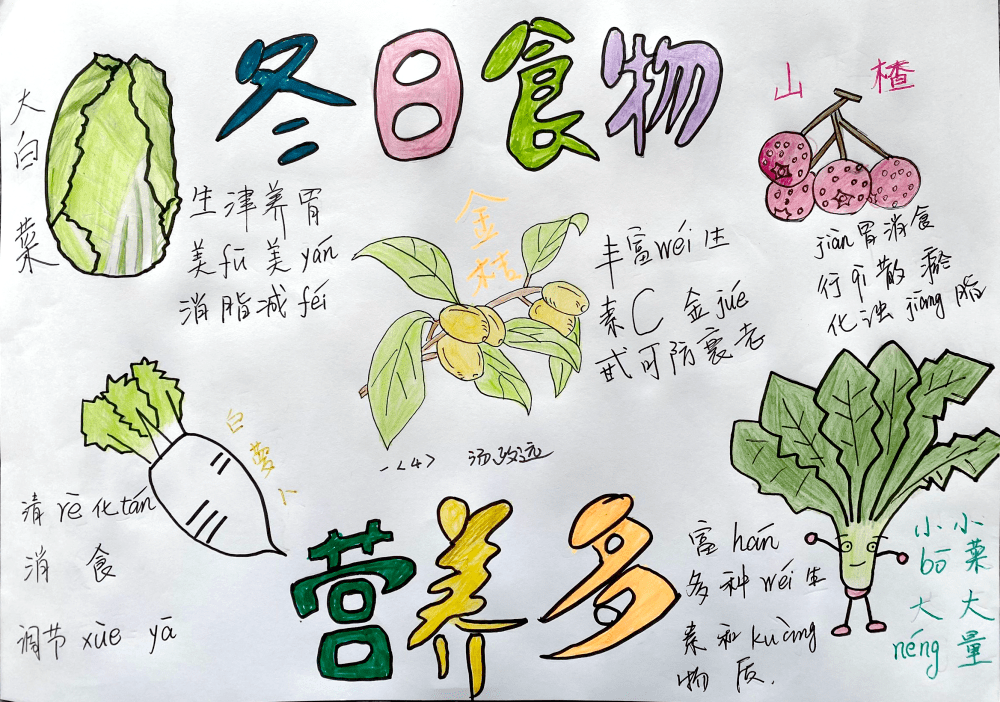 冬日食物
大白菜
生津养胃
美fū美yán
消脂减féi
金桔
丰富wéi生
素C 金jué
或可防衰老
山楂
jiàn胃消食
行qì散瘀
化浊jiàng脂
白萝卜
清rè化tán
消食
调节xùe yā
一<4> 汤致远
营养多
富hán
多种wéi生
素和kuàng
物质.
小小
bō菜
大大
néng量